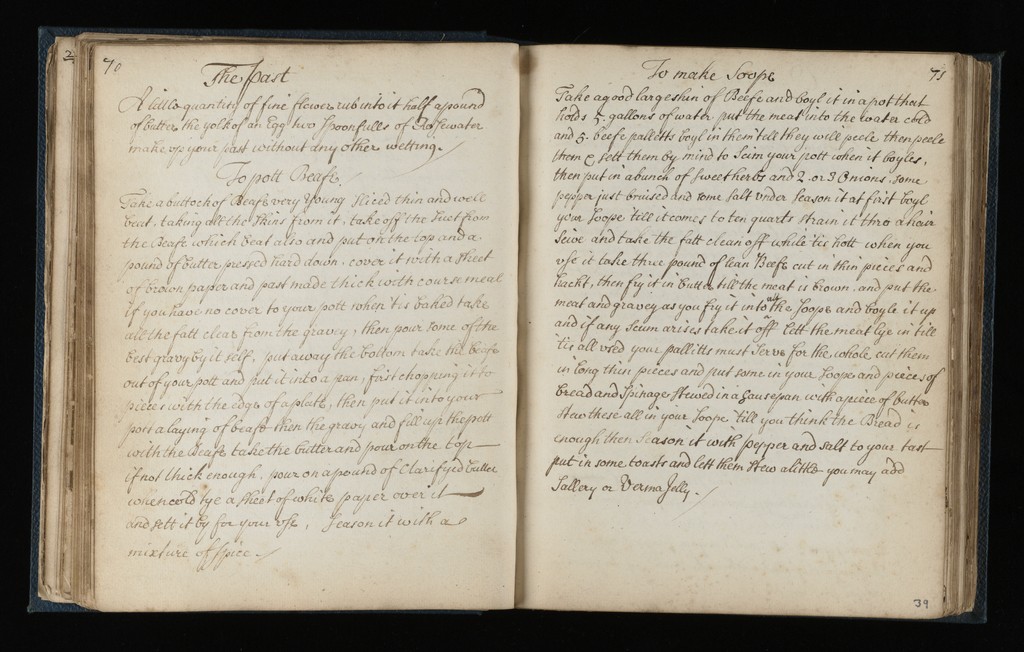 2
70
The past
A little quantity of fine flower rub into it half a pound
of butter the yolk of an Egg two spoonfulls of Rosewater
make up your past without any other wetting.
To pott Beafe
Take a buttock of Beafe very Young sliced thin and well
beat, taking all the skins from it, take off the Suet from
the Beafe which beat also and put on the top and a
pound of butter pressed hard down. cover it with a sheet
of brown paper and past made thick with course meal
if you have no cover to your pott when 'tis baked take
all the fatt clear from the gravey, then pour some of the
best gravy by it self, put away the bottom take the beafe
out of your pott and put it into a pan, first chopping it to
pieces with the edge of a plate, then put it into your
pott a laying of beafe then the gravy and fill up the pott
with the Beafe take the butter and pour on the top
if not thick enough, pour on a pound of Clarifyed butter
when cold tye a sheet of white paper over it
and sett it by for your use, Season it with a
mixture of spice.
71
To make Soope
Take a good large shin of Beefe and boyl it in a pot that
holds 5 gallons of water put the meat into the water cold
and 5 beefe pallitts boyl in them till they will peele then peele
them & sett them by mind to Scim your pott when it boyles,
then put in a bunch of sweet herbs and 2 or 3 Onions, some
pepper just bruised and some salt under season it at first boyl
your Soope 'till it comes to ten quarts strain it thro a hair
seive and take the fatt clean off while 'tis hott when you
use it take three pound of lean Beefe cut in thin pieces and
hackt, then fry it in butter till the meat is brown. and put the
meat and gravey as you fry it into the Soope and boyle it up
and if any Scum arises take it off lett the meat lye in till
'tis all used your pallitts must Serve for the whole cut them
in long thin pieces and put some in your Soope and pieces of
bread and Spinage stewed in a Sausepan with a piece of butter
stew these all in your Soope 'till you think the Bread is
enough then season it with pepper and salt to your tast
put in some toasts and lett them stew a little you may add
Sallery or VermaJelly.
39